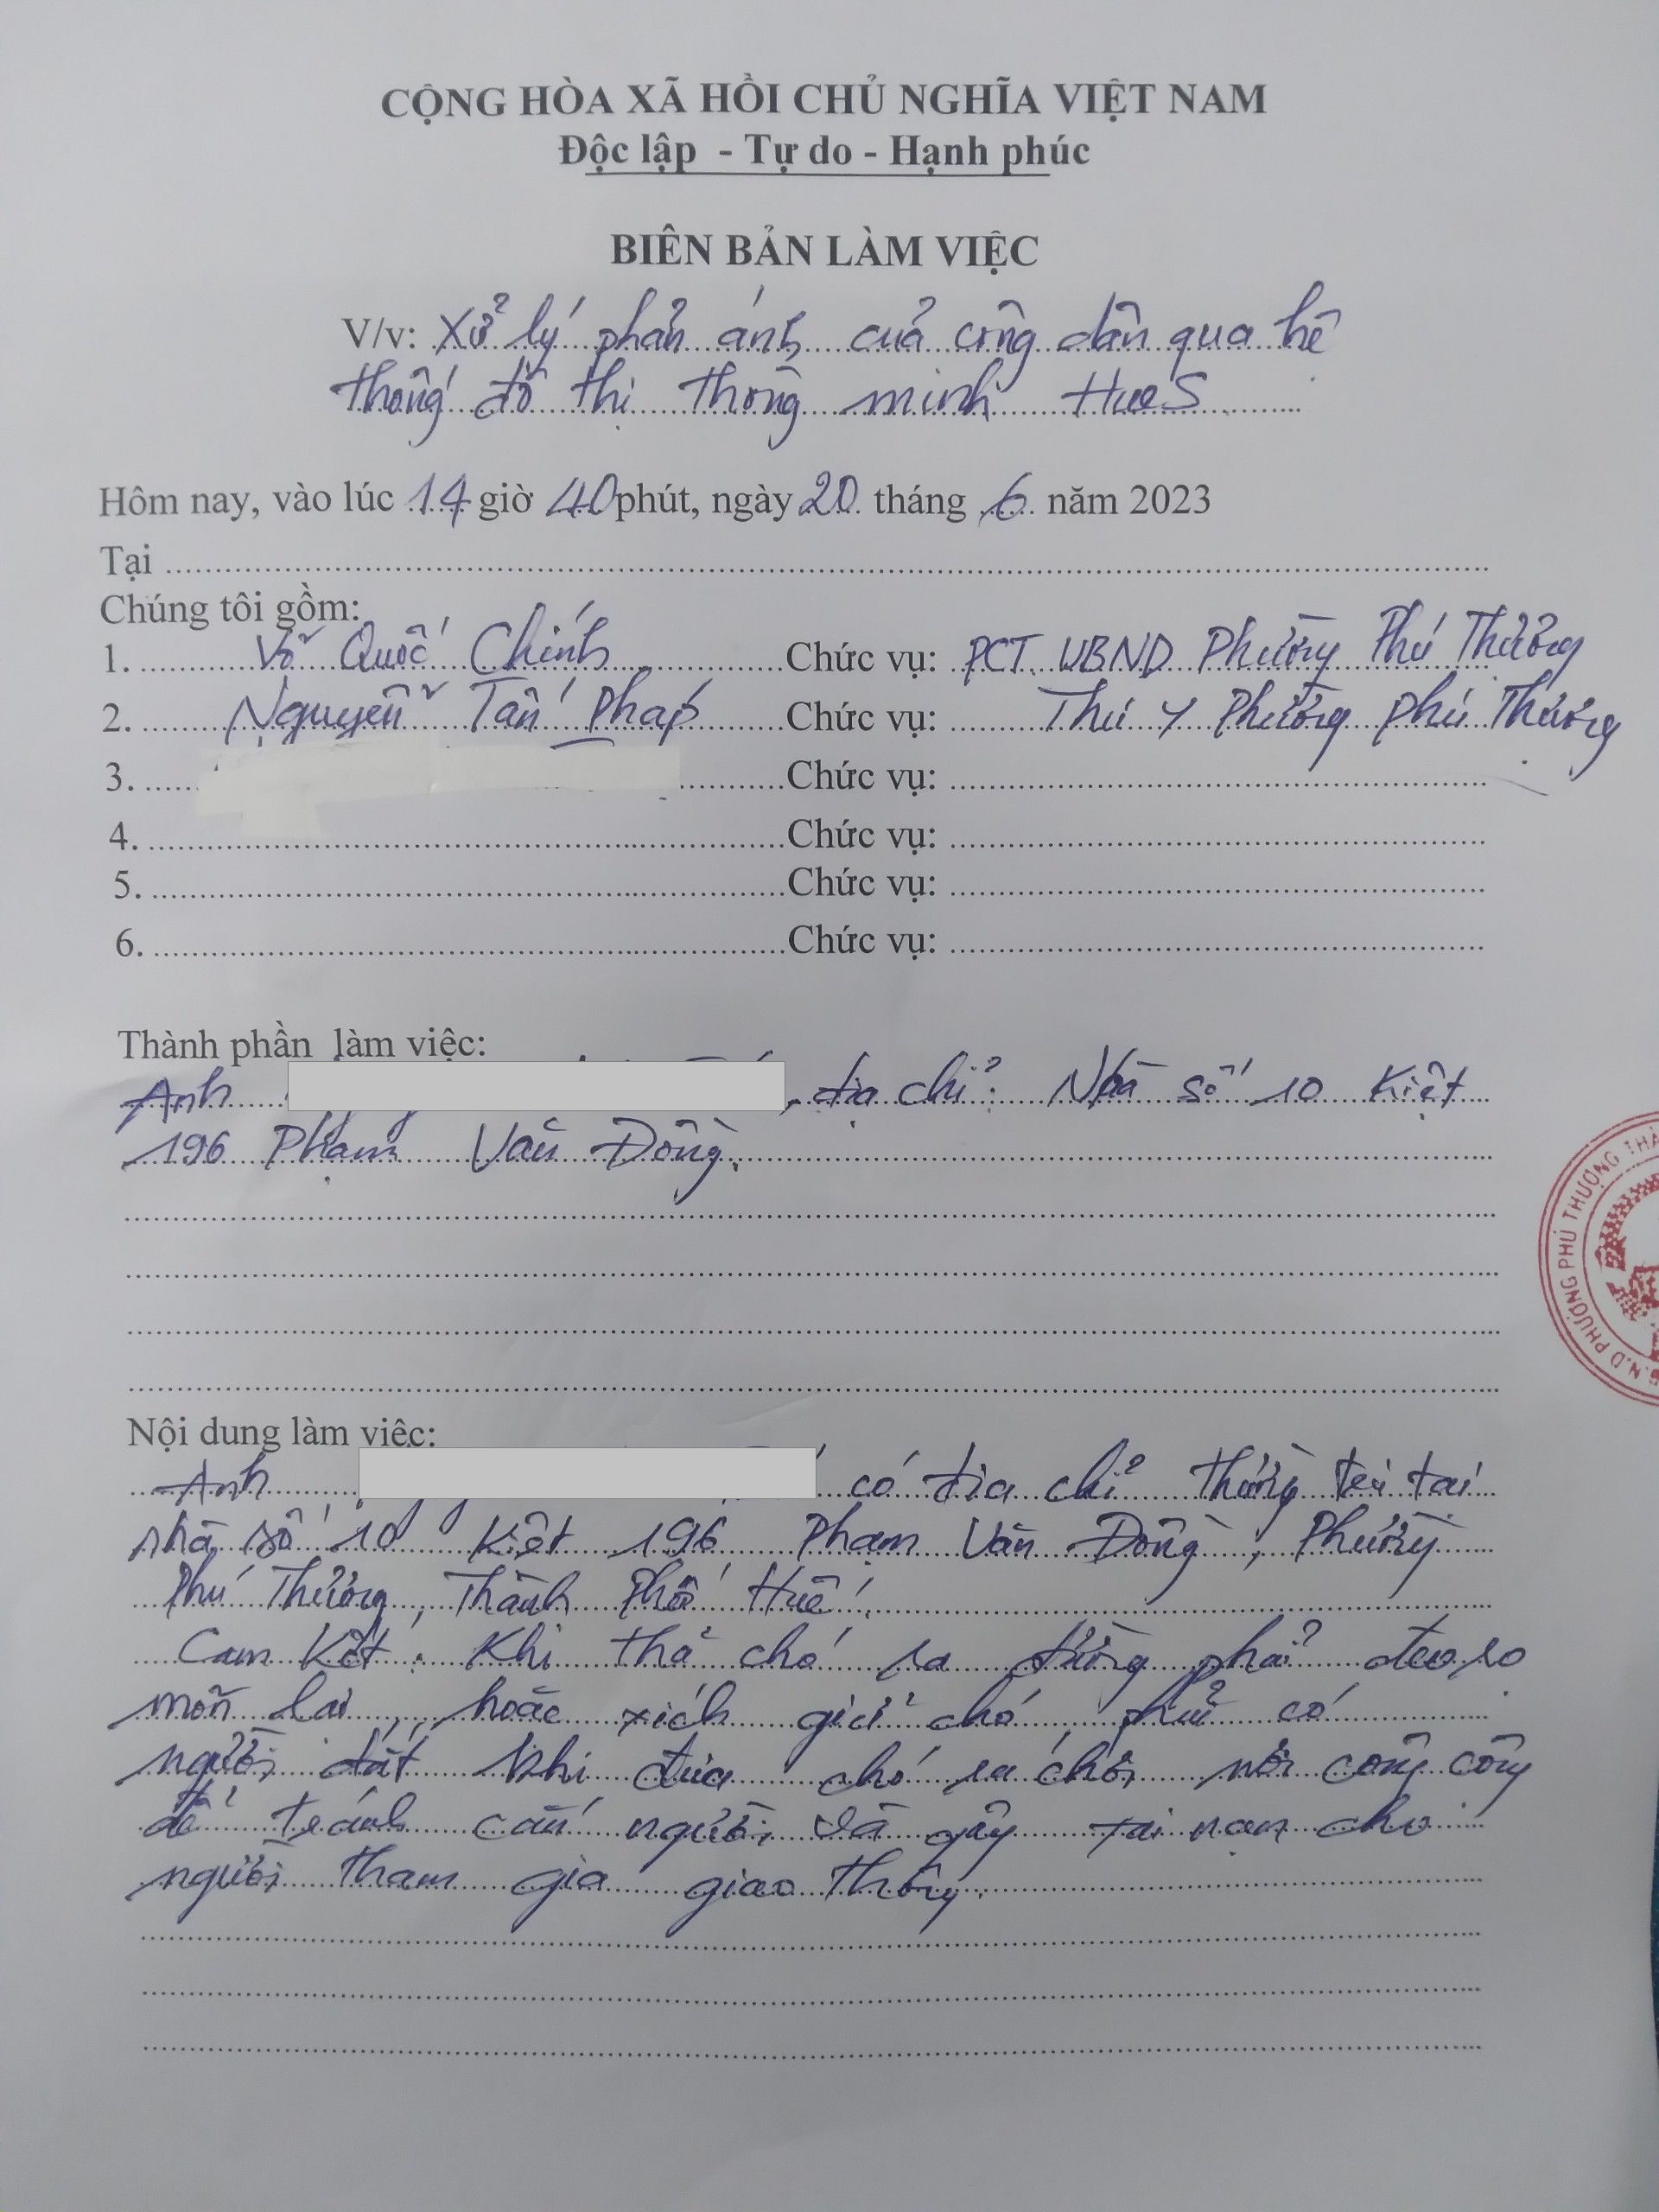 CỘNG HÒA XÃ HỒI CHỦ NGHĨA VIỆT NAM
Độc lập - Tự do - Hạnh phúc
BIÊN BẢN LÀM VIỆC
V/v: Xử lý phản ánh của công dân qua hệ
thống đô thị thông minh HueS
Hôm nay, vào lúc 14 giờ 40 phút, ngày 20 tháng 6 năm 2023
Tại
Chúng tôi gồm:
1. Võ Quốc Chính Chức vụ: PCT UBND Phường Phú Thượng
2. Nguyễn Tấn Pháp Chức vụ: Thú Y Phường Phú Thượng
3. Chức vụ:
4. Chức vụ:
5. Chức vụ:
6. Chức vụ:
Thành phần làm việc:
Anh , địa chỉ: Nhà số 10 Kiệt
196 Phạm Văn Đồng.
PHƯỜNG PHÚ THƯỢNG
Nội dung làm việc:
Anh có địa chỉ thường trú tại
nhà số 10 Kiệt 196 Phạm Văn Đồng, Phường
Phú Thượng, Thành Phố Huế.
Cam Kết: Khi thả chó ra đường phải đeo rọ
mõn lại, hoặc xích giữ chó phải có
người dắt khi đưa chó ra chơi nơi công cộng
để tránh cắn người và gây tai nạn cho
người tham gia giao thông.